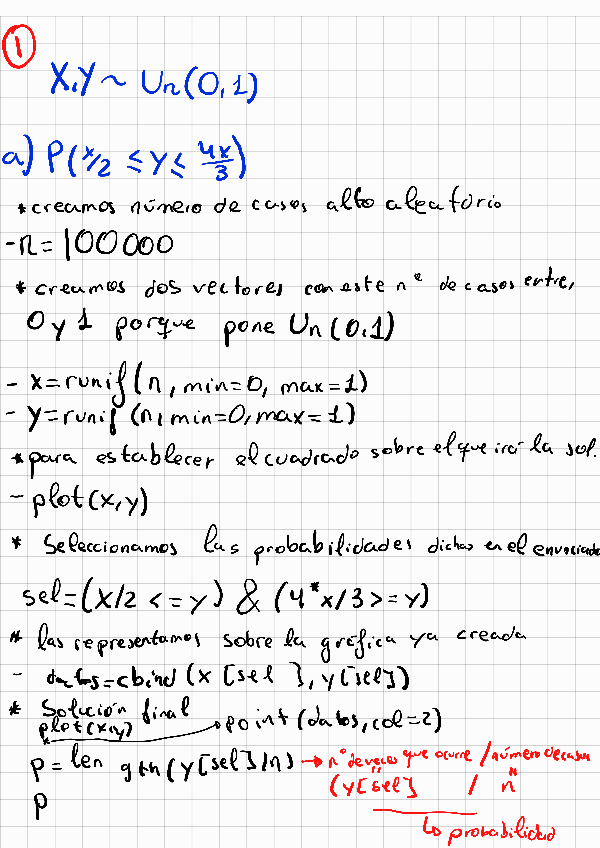 1
X,Y ~ Un(0,1)
a) P(x/2 ≤ y ≤ 4x/3)
*creamos número de casos alto aleatorio
-n=100000
* creamos dos vectores con este nº de casos entre,
0 y 1 porque pone Un(0.1)
- x=runif(n, min=0, max=1)
- y=runif(n, min=0, max=1)
*para establecer el cuadrado sobre el que irá la sol.
- plot(x,y)
* Seleccionamos las probabilidades dichas en el enunciado
sel=(x/2 <=y) & (4*x/3>=y)
* las representamos sobre la gráfica ya creada
- datos=cbind(x[sel], y[sel])
* Solución final
plot(x,y) → point(datos, col=2)
p= length(y[sel]/n) → nº de veces que ocurre / número de casos
(y[sel] / n
p
Lo probabilidad